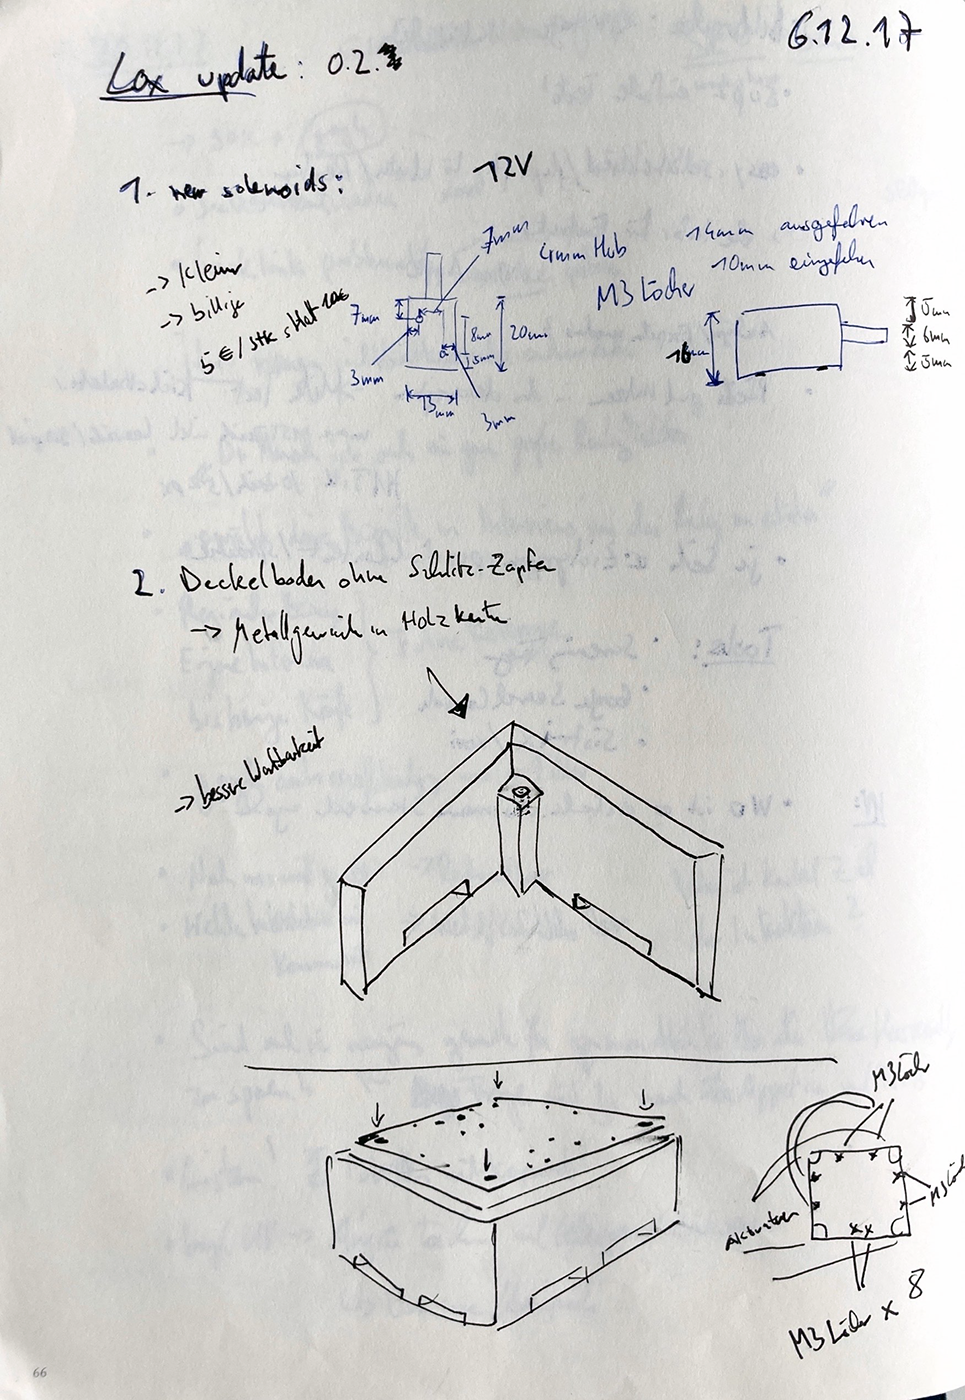 6.12.17
Lox update: 0.2.
1. new solenoids:
12V
→ kleiner
→ billiger
5€/stk statt 10€
7mm
4mm Hub
M3 Löcher
14mm ausgefahren
10mm eingefahren
7mm
3mm
8mm
5mm
20mm
15mm
3mm
16mm
5mm
6mm
5mm
2. Deckelboden ohne Schlitz-Zapfen
→ Metallgewinde in Holzkanten
→ bessere Wartbarkeit
M3 Löcher
M3 Löcher
Aktuatoren
M3 Löcher x 8
66